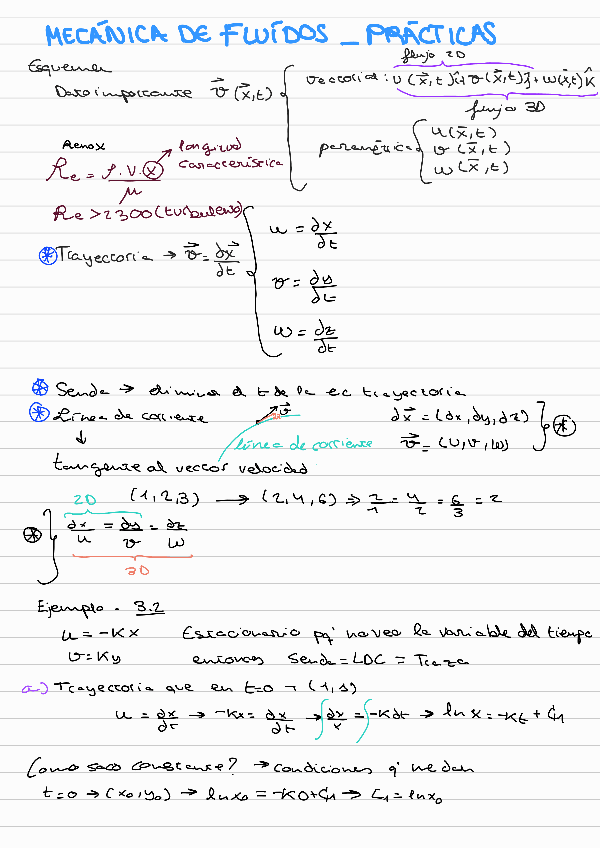 MECÁNICA DE FLUÍDOS _ PRÁCTICAS
Esquema
flujo 2D
Dato importante \vec{v}(\vec{x},t) { vectorial: u(\vec{x},t)î + v(\vec{x},t)ĵ + w(\vec{x},t)k̂
flujo 3D
paramétrica { u(\vec{x},t)
v(\vec{x},t)
w(\vec{x},t)
longitud
característica
Re = ρ.V.x / μ
Re > 2300 (turbulento)
* Trayectoria → \vec{v} = ∂\vec{x}/∂t { u = ∂x/∂t
v = ∂y/∂t
w = ∂z/∂t
* Senda → elimina el t de la ec trayectoria
* Línea de corriente
\vec{v}
línea de corriente
d\vec{x} = (dx, dy, dz)
\vec{v} = (u, v, w) } *
↓
tangente al vector velocidad
2D
(1,2,3) → (2,4,6) ⇒ 2/1 = 4/2 = 6/3 = 2
* } ∂x/u = ∂y/v = ∂z/w
3D
Ejemplo - 3.2
u = -Kx Estacionario pq' no veo la variable del tiempo
v = Ky entonces senda = LDC = Traza
a) Trayectoria que en t=0 → (1,1)
u = ∂x/∂t → -Kx = ∂x/∂t → ∫∂x/x = ∫-Kdt → ln x = -Kt + C1
Como saco constante? → condiciones q' me dan
t=0 → (x0, y0) → ln x0 = -K0 + C1 → C1 = ln x0